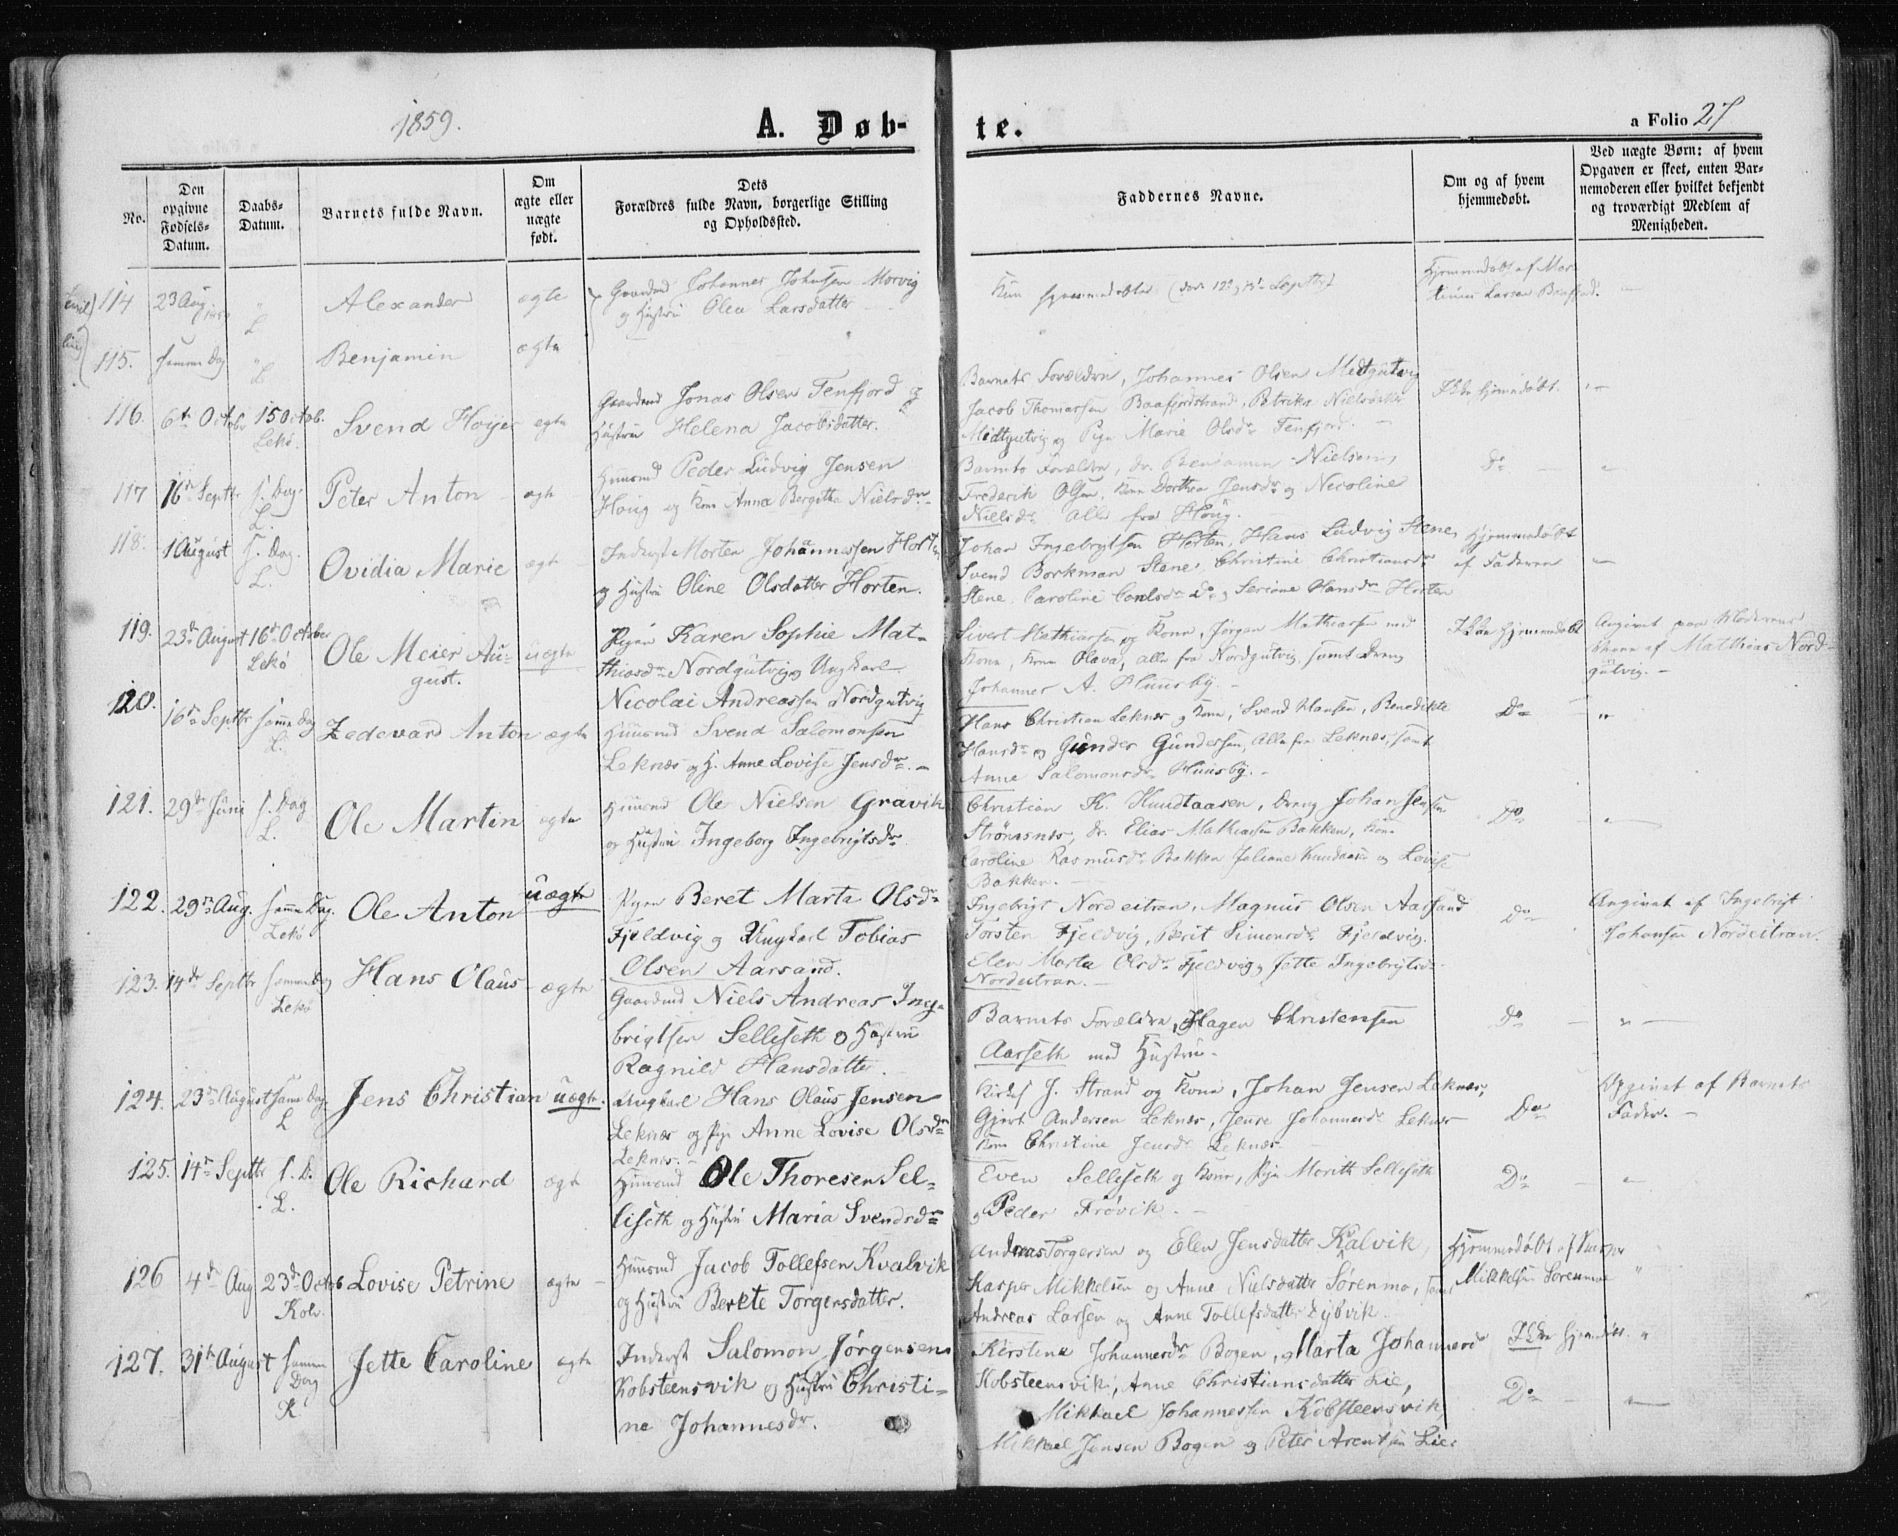 1859.
A. Døb-
te.
a Folio 27
No.
Den opgivne Fødsels-Datum.
Daabs-Datum.
Barnets fulde Navn.
Om ægte eller uægte født.
Dets Forældres fulde Navn, borgerlige Stilling og Opholdssted.
Faddernes Navne.
Om og af hvem hjemmedøbt.
Ved uægte Børn: af hvem Opgaven er skeet, enten Barnemoderen eller hvilket bekjendt og troværdigt Medlem af Menigheden.
114 23 Aug. " L Alexander ægte Gaardmd Johannes Johnsen Morvig
og Hustru Olea Larsdatter
Kun hjemmedøbte
Hjemmedøbt af Mar-
tinus Larsen
115. samme Dag " L Benjamin ægte "
116. 6te Octobr 15 Octob. Lekø Svend Høyer ægte Gaardmd Jonas Olsen Tenfjord og
Hustru Helena Jacobsdatter.
Barnets Forældre, Johannes Olsen Midtgutvig
Jacob Thomassen Baafjordstrand, Petrike Nielsdatter
Midtgutvig og Pige Marie Olsdr Tenfjord.
Ikke hjemmedøbt
117 16de Septbr s. Dag. L. Peter Anton ægte Huusmd Peder Ludvig Jensen
Houg og Kone Anna Bergitha Nielsdr
Barnets Forældre, dr. Benjamin Nielsen,
Frederik Olsen, Kone Dorthea Jensdr og Nicoline
Nielsdr alle fra Houg.
Do
118. 1 August s. Dag. L. Ovidia Marie ægte Inderst Morten Johannessen Horten
og Hustru Oline Olsdatter Horten.
Johan Ingebrigtsen Horten, Hans Ludvig Stene,
Svend Borkman Stene, Christine Christiansdr
Stene, Caroline Carlsdr Do og Seriane Hansdr Horten
Hjemmedøbt
af Faderen
119. 23de August 16de October Lekø Ole Meier Au-
gust. uægte Pigen Karen Sophie Mat-
thiasdr Nordgutvig og Ungkarl
Nicolai Andreassen Nordgutvig
Sivert Mathiassen og Kone, Jørgen Mathiassen med
Kone, Kone Olava, alle fra Nordgutvig, samt Dreng
Johannes A. Huusby.
Ikke hjemmedøbt
Angivet paa Moderens
Vegne af Matthias Nord-
gutvig.
120. 16de Septbr samme Dag L. Zedevard Anton ægte Huusmd Svend Salomonsen
Leknes og H. Anne Lovise Jensdr.
Hans Christian Leknes og Kone, Svend Hansen, Benedikte
Hansdr og Gunder Gundersen, Alle fra Leknes, samt
Anne Salomonsdr Huusby.
Do "
121. 29de Juni s. Dag L. Ole Martin ægte Huusmd Ole Nielsen Gravik
og Hustru Ingeborg Ingebrigtsdr
Christian K. Kundtaasen, Dreng Johan Jensen
Strømsnes, dr. Elias Mathiassen Bakken, Kone
Caroline Rasmusdr Bakken Juliane Kundaasen og Lovise
Bakken.
Do
122. 29de Aug. samme Dag. Lekø Ole Anton uægte Pigen Beret Marta Olsdr
Fjeldvig og Ungkarl Tobias
Olsen Aarsand.
Ingebrigt Nordeitran, Magnus Olsen Aarsand
Torsten Fjeldvig, Berit Simonsdr Fjeldvig.
Elen Marta Olsdr Fjeldvig, Jette Ingebrigtsdr
Nordeitran.
Do
Angivet af Ingebrigt
Johansen Nordeitran.
123. 14de Septbr samme Dag Lekø Hans Olaus ægte Gaardmd Niels Andreas Inge-
brigtsen Selleseth og Hustru
Ragnild Hansdatter.
Barnets Forældre, Hagen Christensen
Aarseth med Hustru.
Do "
124. 23de August samme Dag. L Jens Christian uægte. Ungkarl Hans Olaus Jensen
Leknes og Pige Anne Lovise Olsdr
Leknes.
J. Strand og Kone, Johan Jensen Leknes,
Gjert Andersen Leknes, Jense Johannesdr Leknes
Kone Christine Jensdr Leknes.
Do
Opgivet af Barnets
Fader.
125. 14de Septbr s. D. L. Ole Richard ægte Huusmd Ole Thoresen Sel-
liseth og Hustru Maria Svendsdr
Even Selleseth og Kone, Pige Marith Selleseth
og Peder Frøvik.
Do
126 4de Aug 23de Octob Kolv. Lovise Petrine ægte Huusmd Jacob Tollefsen Kvalvik
og Hustru Berete Torgersdatter.
Andreas Torgersen og Elen Jensdatter Kalvik,
Kasper Mikkelsen og Anne Nielsdatter Sørenmo, samt
Andreas Larsen og Anne Tollefsdatter Dybvik.
Hjemmedøbt af Kasper
Mikkelsen Sørenmo "
127. 31te August samme Dag K. Jette Caroline ægte Inderst Salomon Jørgensen
Kobsteensvik og Hustru Christi-
ne Johannesdr.
Kirstine Johannesdr Bogen, og Marta Johannesdr
Kobsteensvik, Anne Christiansdatter Lie,
Mikkael Johannessen Kobsteensvik,
Mikkael Jensen Bogen og Peter Arentsen Lie.
Ikke hjemmedøbt. "
Do